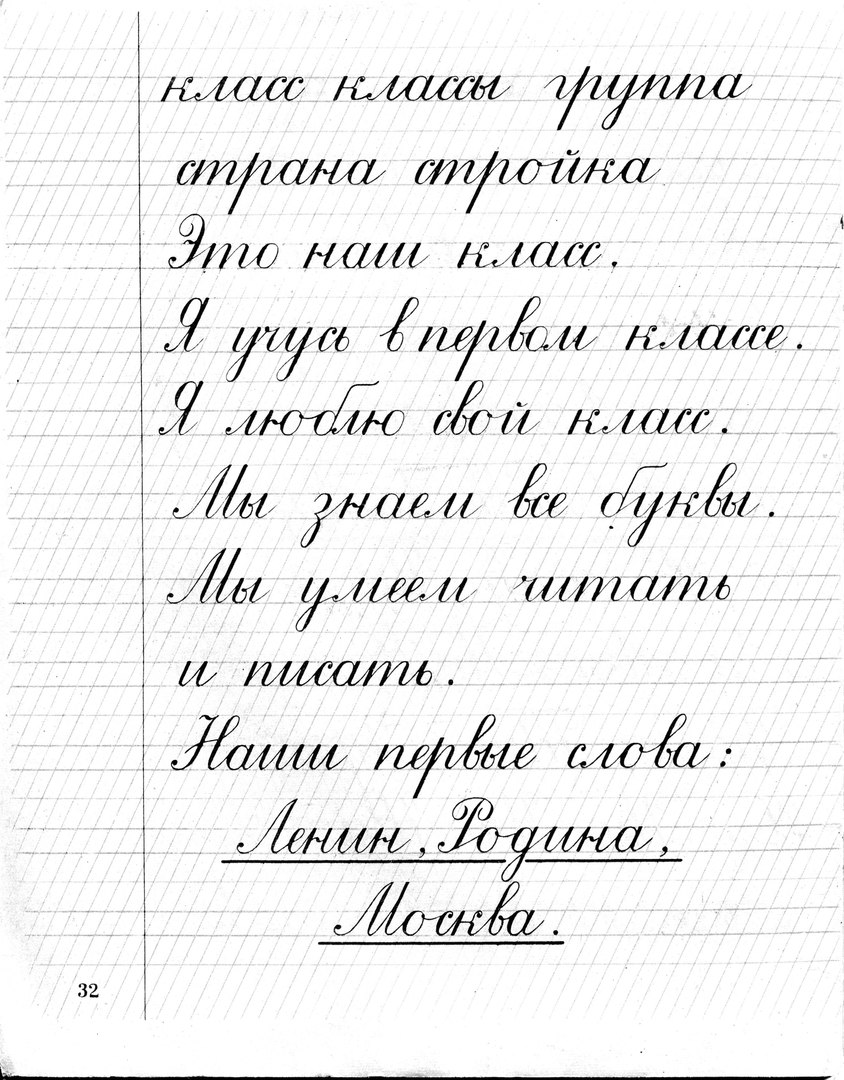 класс классы группа
страна стройка
Это наш класс.
Я учусь в первом классе.
Я люблю свой класс.
Мы знаем все буквы.
Мы умеем читать
и писать.
Наши первые слова:
Ленин, Родина,
Москва.
32